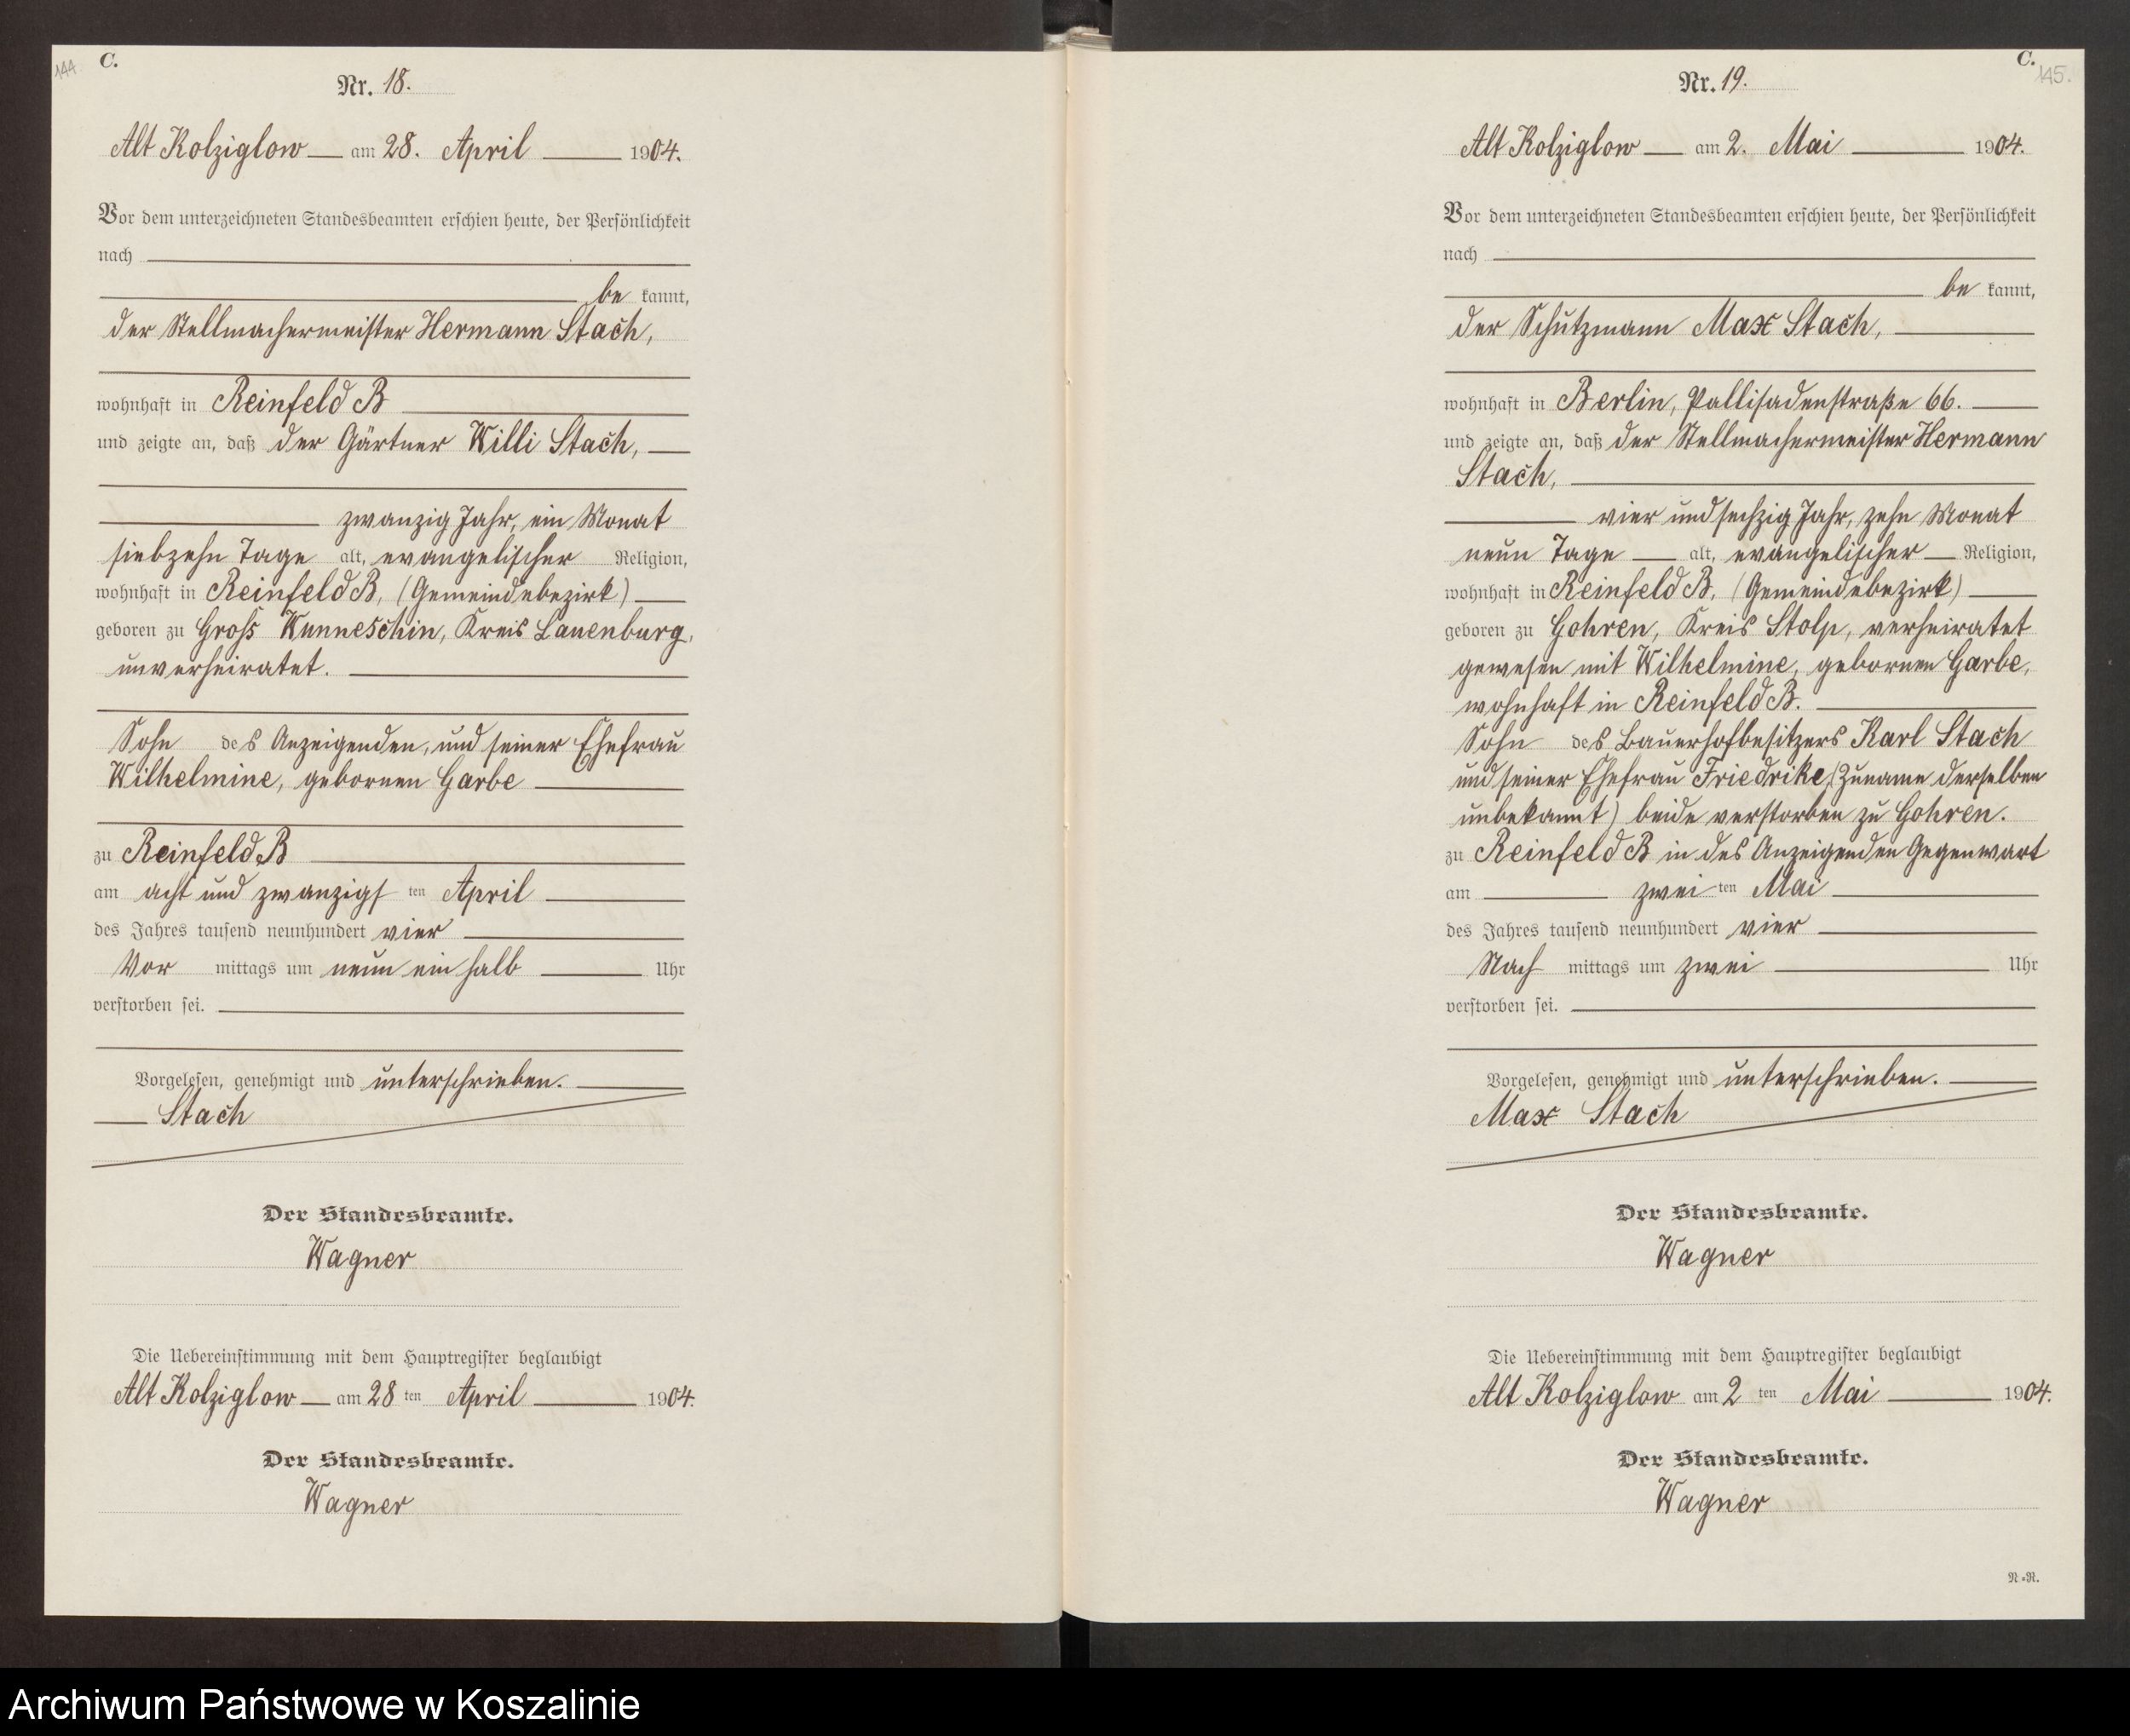 144
C.
Nr. 18.
Alt Kolziglow am 28. April 1904.
Vor dem unterzeichneten Standesbeamten erschien heute, der Persönlichkeit
nach
be kannt,
der Stellmachermeister Hermann Stach,
wohnhaft in Reinfeld B
und zeigte an, daß der Gärtner Willi Stach,
zwanzig Jahr, ein Monat
siebzehn Tage alt, evangelischer Religion,
wohnhaft in Reinfeld B, (Gemeindebezirk)
geboren zu Groß Wunneschin, Kreis Lauenburg,
unverheiratet.
Sohn des Anzeigenden, und seiner Ehefrau
Wilhelmine, gebornen Garbe
zu Reinfeld B
am acht und zwanzigs ten April
des Jahres tausend neunhundert vier
Vor mittags um neun ein halb Uhr
verstorben sei.
Vorgelesen, genehmigt und unterschrieben.
Stach
Der Standesbeamte.
Wagner
Die Uebereinstimmung mit dem Hauptregister beglaubigt
Alt Kolziglow am 28 ten April 1904.
Der Standesbeamte.
Wagner
C.
145.
Nr. 19.
Alt Kolziglow am 2. Mai 1904.
Vor dem unterzeichneten Standesbeamten erschien heute, der Persönlichkeit
nach
be kannt,
der Schutzmann Max Stach,
wohnhaft in Berlin, Pallisadenstraße 66.
und zeigte an, daß der Stellmachermeister Hermann
Stach,
vier und sechzig Jahr, zehn Monat
neun Tage alt, evangelischer Religion,
wohnhaft in Reinfeld B, (Gemeindebezirk)
geboren zu Gohren, Kreis Stolp, verheiratet
gewesen mit Wilhelmine, gebornen Garbe,
wohnhaft in Reinfeld B.
Sohn des Bauerhofbesitzers Karl Stach
und seiner Ehefrau Friedrike, (Zuname derselben
unbekannt) beide verstorben zu Gohren.
zu Reinfeld B in des Anzeigenden Gegenwart
am zwei ten Mai
des Jahres tausend neunhundert vier
Nach mittags um zwei Uhr
verstorben sei.
Vorgelesen, genehmigt und unterschrieben.
Max Stach
Der Standesbeamte.
Wagner
Die Uebereinstimmung mit dem Hauptregister beglaubigt
Alt Kolziglow am 2 ten Mai 1904.
Der Standesbeamte.
Wagner
N=R.
Archiwum Państwowe w Koszalinie